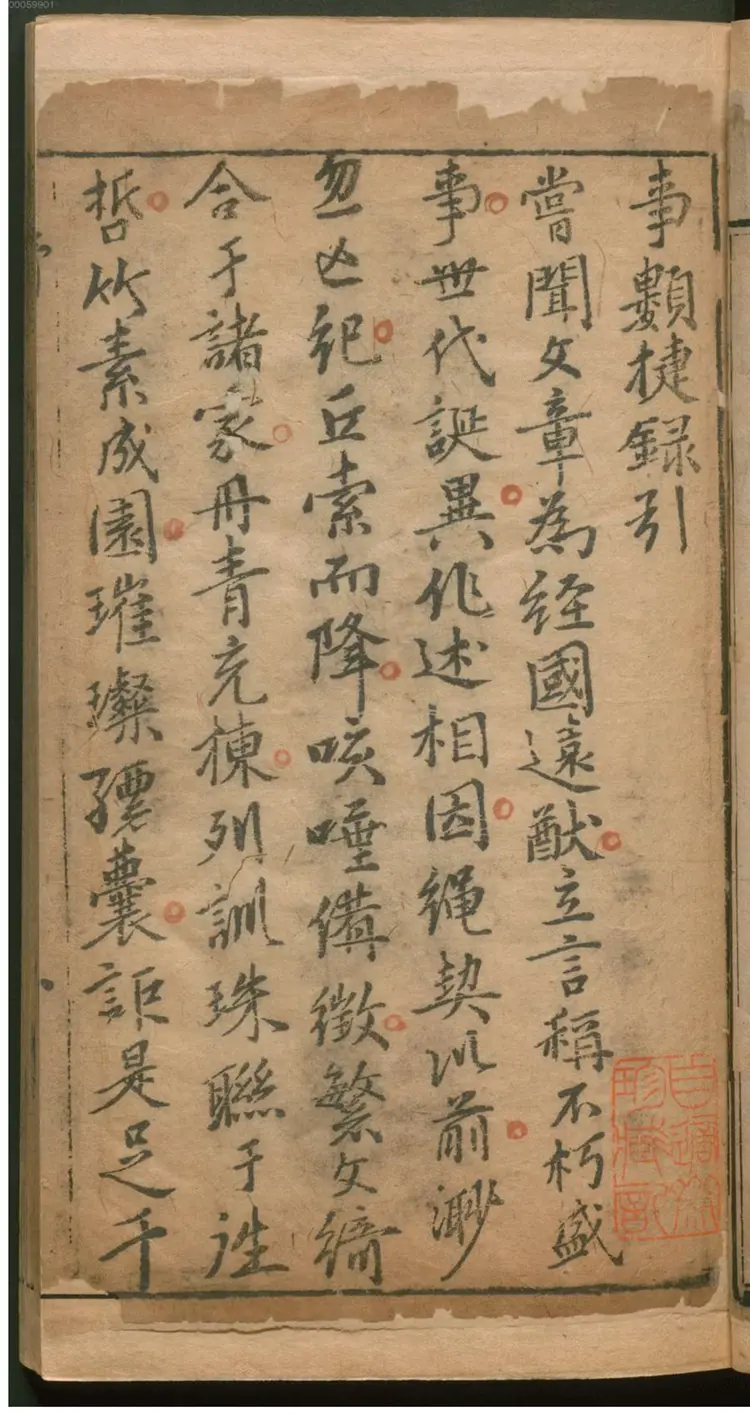 事類捷録引
嘗聞文章為経國遠猷立言稱不朽盛
事世代誕異作述相因繩契以前渺
忽亡紀丘索而降咳唾備徵繁文綺
合于諸家丹青充棟列訓珠聯于徃
哲竹素成園璀璨缥囊詎是足千
00059901